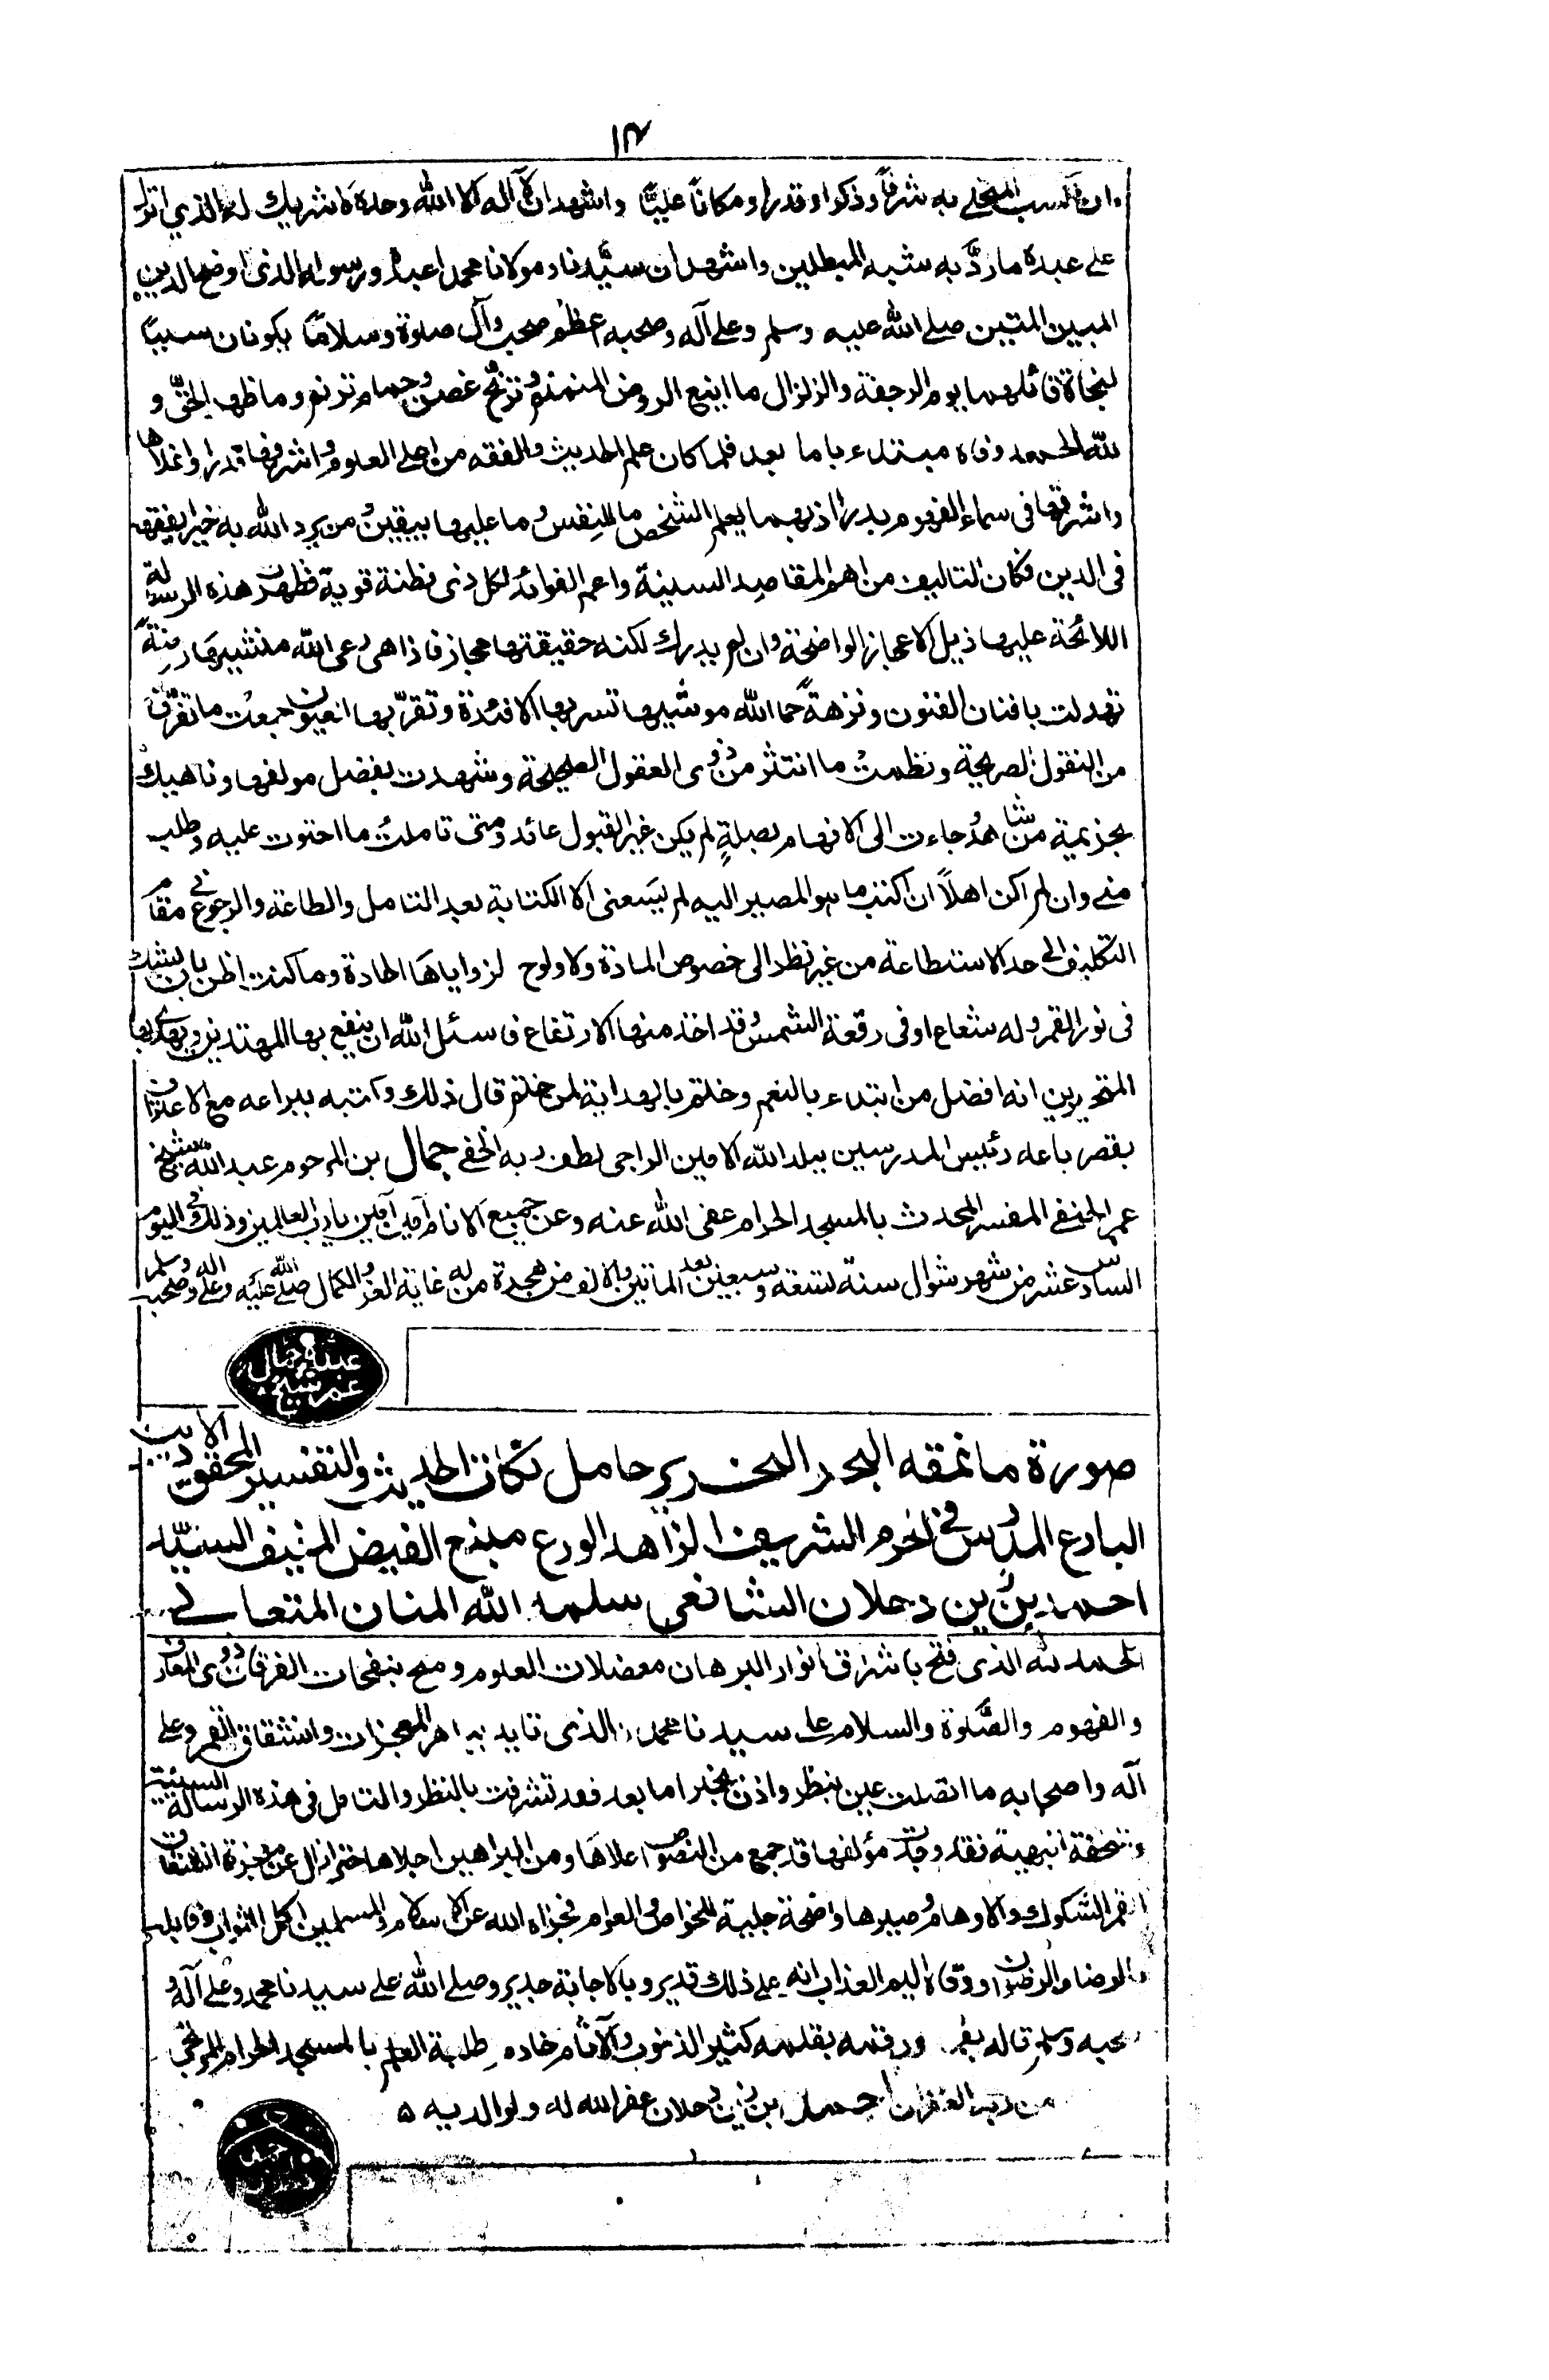 ١٣
وان اكسب المتحلي به شرفًا وذكرا وقدرا ومكانًا عليًّا واشهد ان لا اله الا الله وحده لا شريك له الذي انزل
على عبده ما ردّ به شبه المبطلين واشهد ان سيّدنا ومولانا محمدا عبده ورسوله الذى اوضح الدين
المبين المتين صلے الله عليه وسلم وعلى آله وصحبه اعظم صحب وآل صلوة وسلامًا يكونان سببًا
لنجاة قائلهما يوم الرجفة والزلزال ما اينع الروض المنمنم وترنّح غصن وحمام ترنم وما ظهر الحق و
لله الحمد وفاه مبتدء باما بعد فلما كان علم الحديث والفقه من اجلے العلوم واشرفها قدرا واغلاها
واشرقها فى سماء الفهوم بدرا اذ بهما يعلم الشخص ما للنفس وما عليها بيقين ومن يرد الله به خيرا يفقهه
فى الدين فكان التاليف من اهم المقاصد السنية واعم الفوائد لكل ذى فطنة قوية فظهرت هذه الرسالة
اللائحة عليها ذيل الاعجاز الواضحة وان لم يدرك لكنه حقيقتها مجاز فاذا هى رعى الله منشيها روضة
تهدلت بافنان الفنون ونزهةً حما الله موشيها تسر بها الافئدة وتقرّ بها العيون جمعت ما تفرّق
من النقول الصريحة ونظمت ما انتثر من ذوى العقول الصحيحة وشهدت بفضل مولفها وناهيك
بخزيمة من شاهد جاءت الى الافهام بصلةٍ لم يكن غير القبول عائد ومتى تاملت ما احتوت عليه وطلب
منے وان لم اكن اهلاً ان اكتب ما هو المصير اليه لم يسعنى الا الكتابة بعد التامل والطاعة والرجوع فى مقام
التكليف الى حد الاستطاعة من غير نظر الى خصوص المادة ولا ولوج لزواياها الحادة وما كنت اظن بان يشك
فى نور القمر وله شعاع او فى رفعة الشمس وقد اخذ منها الارتفاع فاسئل الله ان ينفع بها المهتدين ويهدى بها
المتحيرين انه افضل من ابتدء بالنعم وختم بالهداية لمن ختم قال ذلك وكتبه بيراعه مع الاعتراف
بقصر باعه رئيس المدرسين ببلد الله الامين الراجى لطف ربه الخفے جمال بن المرحوم عبد الله شيخ
عمر الحنفے المفسر المحدث بالمسجد الحرام عفى الله عنه وعن جميع الانام آمين آمين يا رب العالمين وذلك فى اليوم
السادس عشر من شهر شوال سنة تسعة وسبعين بعد الماتين والالف من هجرة من له غاية العز والكمال صلے الله عليه وعلى اله وصحبه وسلم
عبده جمال
عمر شيخ
صورة ما نمقه البحر النحرير حامل نكات الحديث والتفسير المحقق
البارع المدرس فى الحرم الشريف الزاهد الورع منبع الفيض المنيف السيّد
احمد بن زين دحلان الشافعى سلمه الله المنان المتعالے
الحمد لله الذى فتح باشراق انوار البرهان معضلات العلوم ومنح بنفحات الفرقان ذوى المعارف
والفهوم والصّلوة والسلام على سيدنا محمد الذى تايد بباهر المعجزات وانشقاق القمر وعلى
آله واصحابه ما اتصلت عين بنظر واذن بخبر اما بعد فقد تشرفت بالنظر والتامل فى هذه الرسالة السنية
والتحفة البهية فقد وجدت مؤلفها قد جمع من النصوص اعلاها ومن البراهين اجلاها حتى ازال عن معجزة انشقاق
القمر الشكوك والاوهام وصيرها واضحة جلية للخواص والعوام فجزاه الله عن الاسلام والمسلمين اكمل الثواب وقابله
بالرضا والرضوان ووقاه اليم العذاب انه على ذلك قدير وبالاجابة جدير وصلے الله على سيدنا محمد وعلى آله و
صحبه وسلم قاله بفمه ورقمه بقلمه كثير الذنوب والآثام خادم طلبة العلم بالمسجد الحرام المرتجى
من ربه الغفران احمد بن زين دحلان غفر الله له ولوالديه ٥